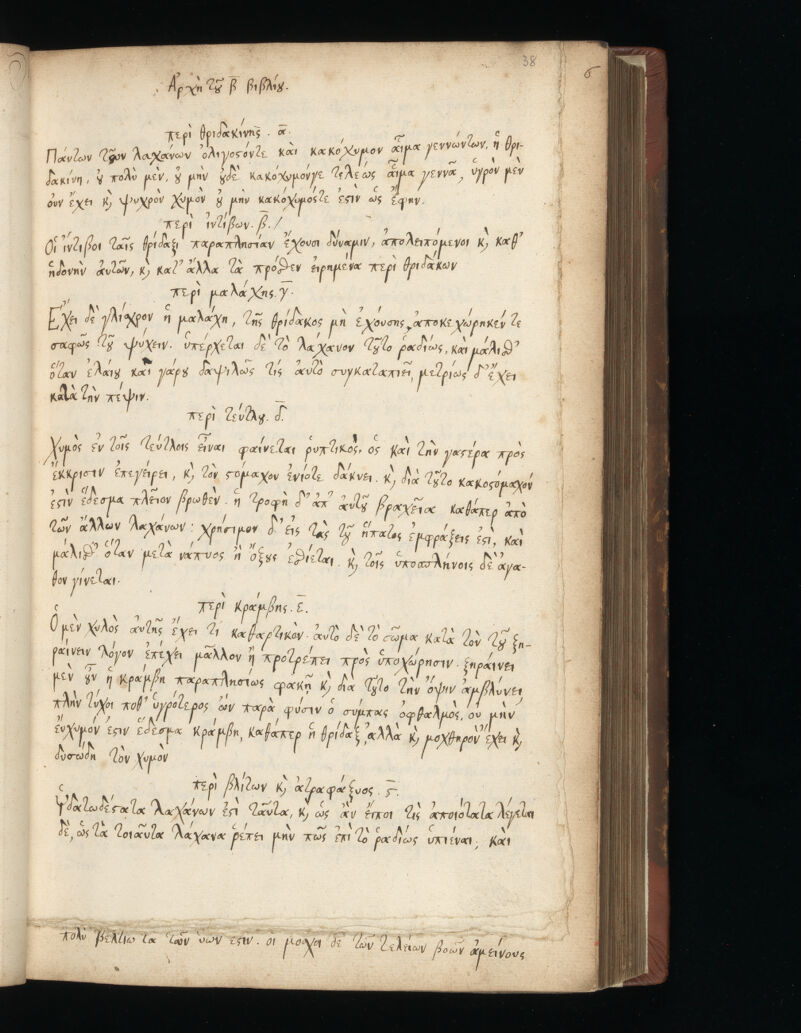 38
6
Ἀρχὴ τοῦ β̄ βιβλίου.
περὶ θριδακίνης. ᾱ.
Πάντων τῶν λαχάνων ὀλιγοσόντε καὶ κακόχυμον αἷμα γεννώντων, ἡ θρι-
δακίνη, οὐ πολὺ μὲν, οὐ μὴν οὐδὲ κακόχυμόνγε τελέως αἷμα γεννᾶ, ὑγρὸν μὲν
οὖν ἔχει κὶ ψυχρὸν χυμὸν οὐ μὴν κακόχυμόστε ἐστὶν ὡς ἔφην.
περὶ ἰντίβων. β̄. /
Οἱ ἴντιβοι ταῖς θρίδαξι παραπλησίαν ἔχουσι δύναμιν, ἀπολειπόμενοι κὶ καθ'
ἡδονὴν αὐτῶν, κὶ κατ' ἄλλα τὰ πρόσθεν εἰρημένα περὶ θριδάκων
περὶ μαλάχης. γ̄.
Ἔχει δὲ γλίσχρον ἡ μαλάχη, τῆς θρίδακος μὴ ἐχούσης, ἀποκεχώρηκέν τε
σαφῶς τοῦ ψύχειν. ὑπέρχεται δὲ τὸ λάχανον τοῦτο ῥαδίως, καὶ μάλισθ'
ὅταν ἐλαίου καὶ γάρου δαψιλῶς τὶς αὐτὸ συγκαταπιεῖ, μετρίως δ' ἔχει
κατὰ τὴν πέψιν.
περὶ τεύτλου. δ̄.
Χυμὸς ἐν τοῖς τεύτλοις εἶναι φαίνεται ῥυπτικὸς, ὃς καὶ τὴν γαστέρα πρὸς
ἔκκρισιν ἐπεγείρει, κὶ τὸν στόμαχον ἐνίοτε δάκνει. κὶ διὰ τοῦτο κακοστόμαχόν
ἐστὶν ἔδεσμα πλεῖον βρωθὲν. ἡ τροφὴ δ' ἀπ' αὐτοῦ βραχεῖα καθάπερ ἀπὸ
τῶν ἄλλων λαχάνων: χρήσιμον δ' εἰς τὰς τοῦ ἥπατος ἐμφράξεις ἐστὶ, καὶ
μάλισθ' ὅταν μετὰ νάπυος ἢ ὄξους ἐσθίεται. κὶ τοῖς ὑποσπλήνοις δὲ ἀγα-
θον γίνεται.
περὶ κράμβης. ε̄.
Ὁ μὲν χυλὸς αὐτῆς ἔχει τὶ καθαρτικὸν. αὐτὸ δὲ τὸ σῶμα κατὰ τὸν τοῦ ξη-
ραίνειν λόγον ἐπέχει μᾶλλον ἢ προτρέπει πρὸς ὑποχώρησιν. ξηραίνει
μὲν οὖν ἡ κράμβη παραπλησίως φακῇ κὶ διὰ τοῦτο τὴν ὄψιν ἀμβλύνει,
πλὴν τύχοι ποθ' ὑγρότερος ὢν παρὰ φύσιν ὁ σύμπας ὀφθαλμὸς, οὐ μὴν
εὔχυμόν ἐστιν ἔδεσμα κράμβη, καθάπερ ἡ θρίδαξ, ἀλλὰ κὶ μοχθηρὸν ἔχει κὶ
δυσώδη τὸν χυμὸν
περὶ βλίτων κὶ ἀτραφάξυος. ϛ̄.
Ὑδατωδέστατα λαχάνων ἐστὶ ταῦτα, κὶ ὡς ἂν εἴποι τὶς ἀποιότατα λέγεται
δὲ, ὡς τὰ τοιαῦτα λάχανα ῥέπει μὴν πῶς ἐπὶ τὸ ῥαδίως ὑπιέναι, καὶ
πολὺ βελτίω τα τῶν ὑων ἐστιν. οἱ μόσχοι δὲ τῶν τελείων βοῶν ἀμείνους